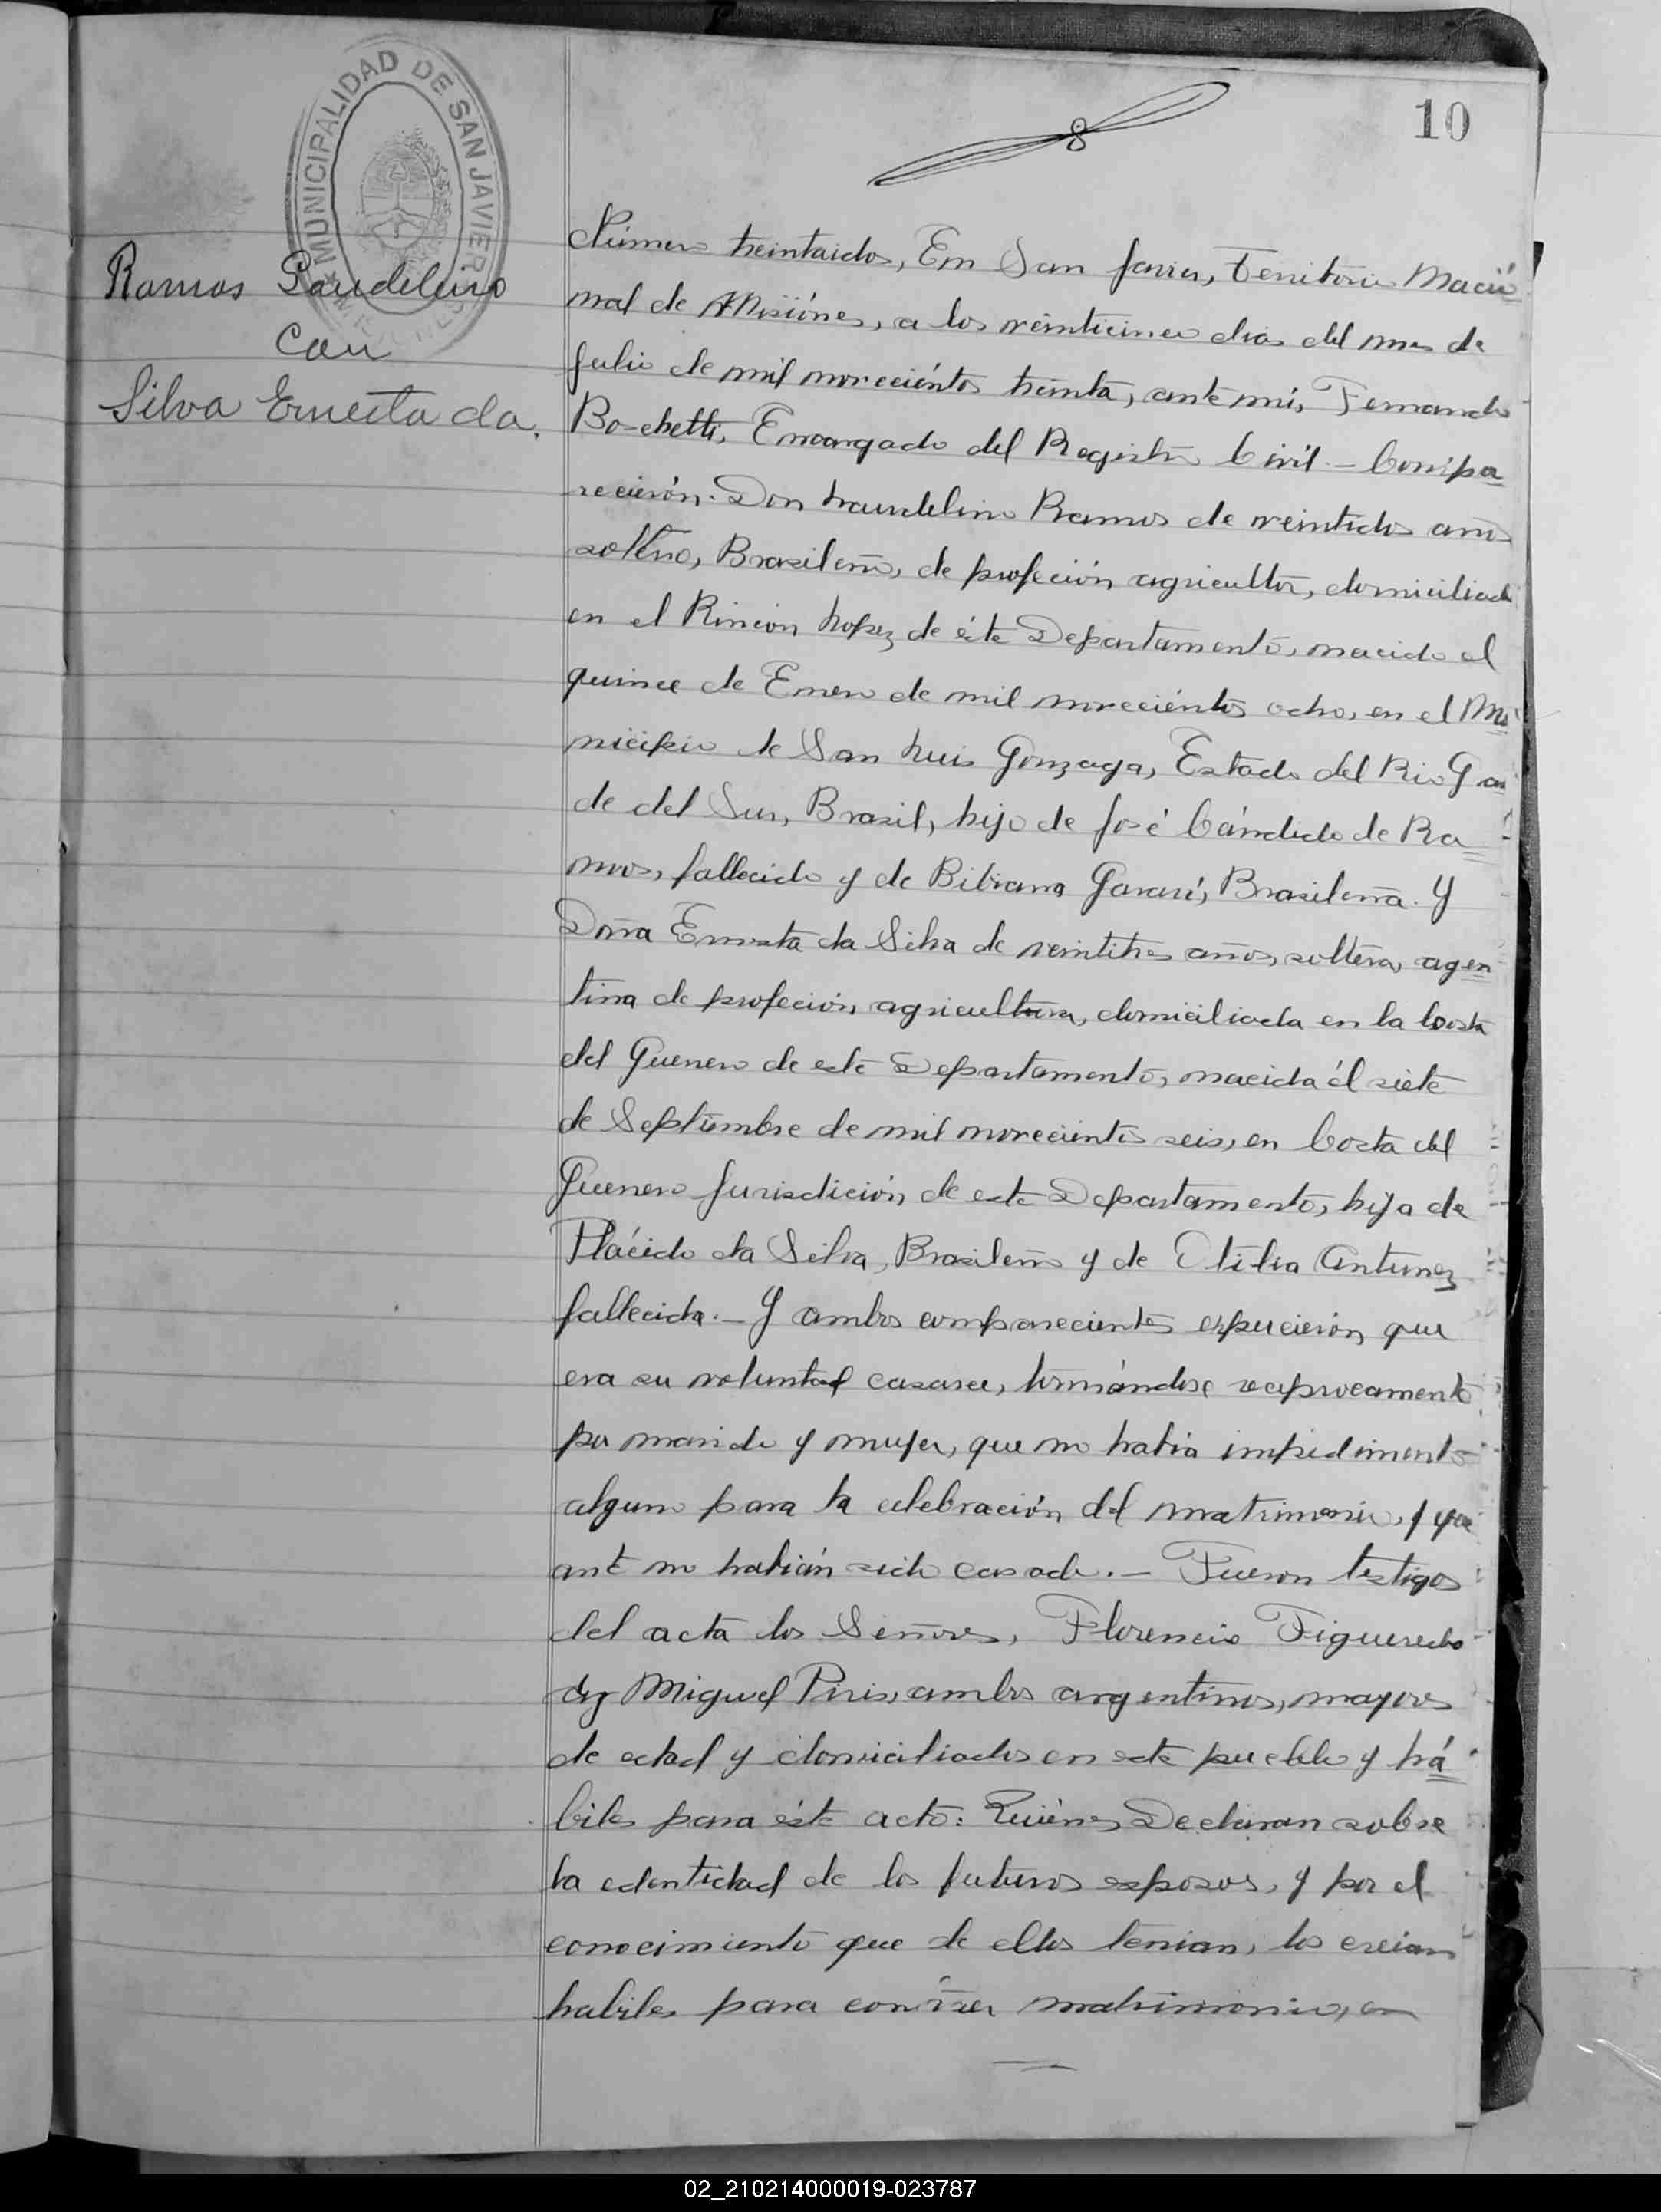 10
MUNICIPALIDAD DE SAN JAVIER
Ramos Laudelino
con
Silva Ernesta da.
Número treintaidos, En San Javier, Territorio Nació
nal de Misiónes, a los veinticinco dias del mes de
Julio de mil noveciéntos treinta, ante mi, Fernando
Bo-chetti, Encargado del Registro Civil.- Compa
reciéron. Don Laudelino Ramos de veintidos años
soltero, Brasileño, de profeción agricultor, domiciliado
en el Rincon Lopez de éste Departamento, nacido el
quince de Enero de mil noveciéntos ocho, en el Mu
nicipio de San Luis Gonzaga, Estado del Rio Gran
de del Sur, Brasil, hijo de José Cándido de Ra
mos, fallecido y de Bibiana Brasileña. Y
Doña Ernesta da Silva de veintitres años, soltera, agen
tina de profeción agricultora, domiciliada en la Costa
del Guerrero de este Departamento, nacida él siete
de Septiembre de mil novecientos seis, en Costa del
Guerrero Jurisdición de este Departamento, hija de
Plácido da Silva, Brasileño y de Antunez
fallecida.- Y ambos comparecientes que
era su voluntad casarse, tomándose reciprocamente
por marido y mujer, que no habia impedimento
alguno para la celebración del matrimonio, y que
ante no habián sido casado.- Fueron testigos
del acta los Señores, Florencio Figueredo
y Miguel Piris, ambos argentinos, mayores
de edad y domiciliados en este pueblo y há
biles para éste acto: Quiénes Declaran sobre
la edentidad de los futuros esposos, y por el
conocimiento que de ellos tenian, los creian
habiles para contraer matrimonio, en
02_210214000019-023787